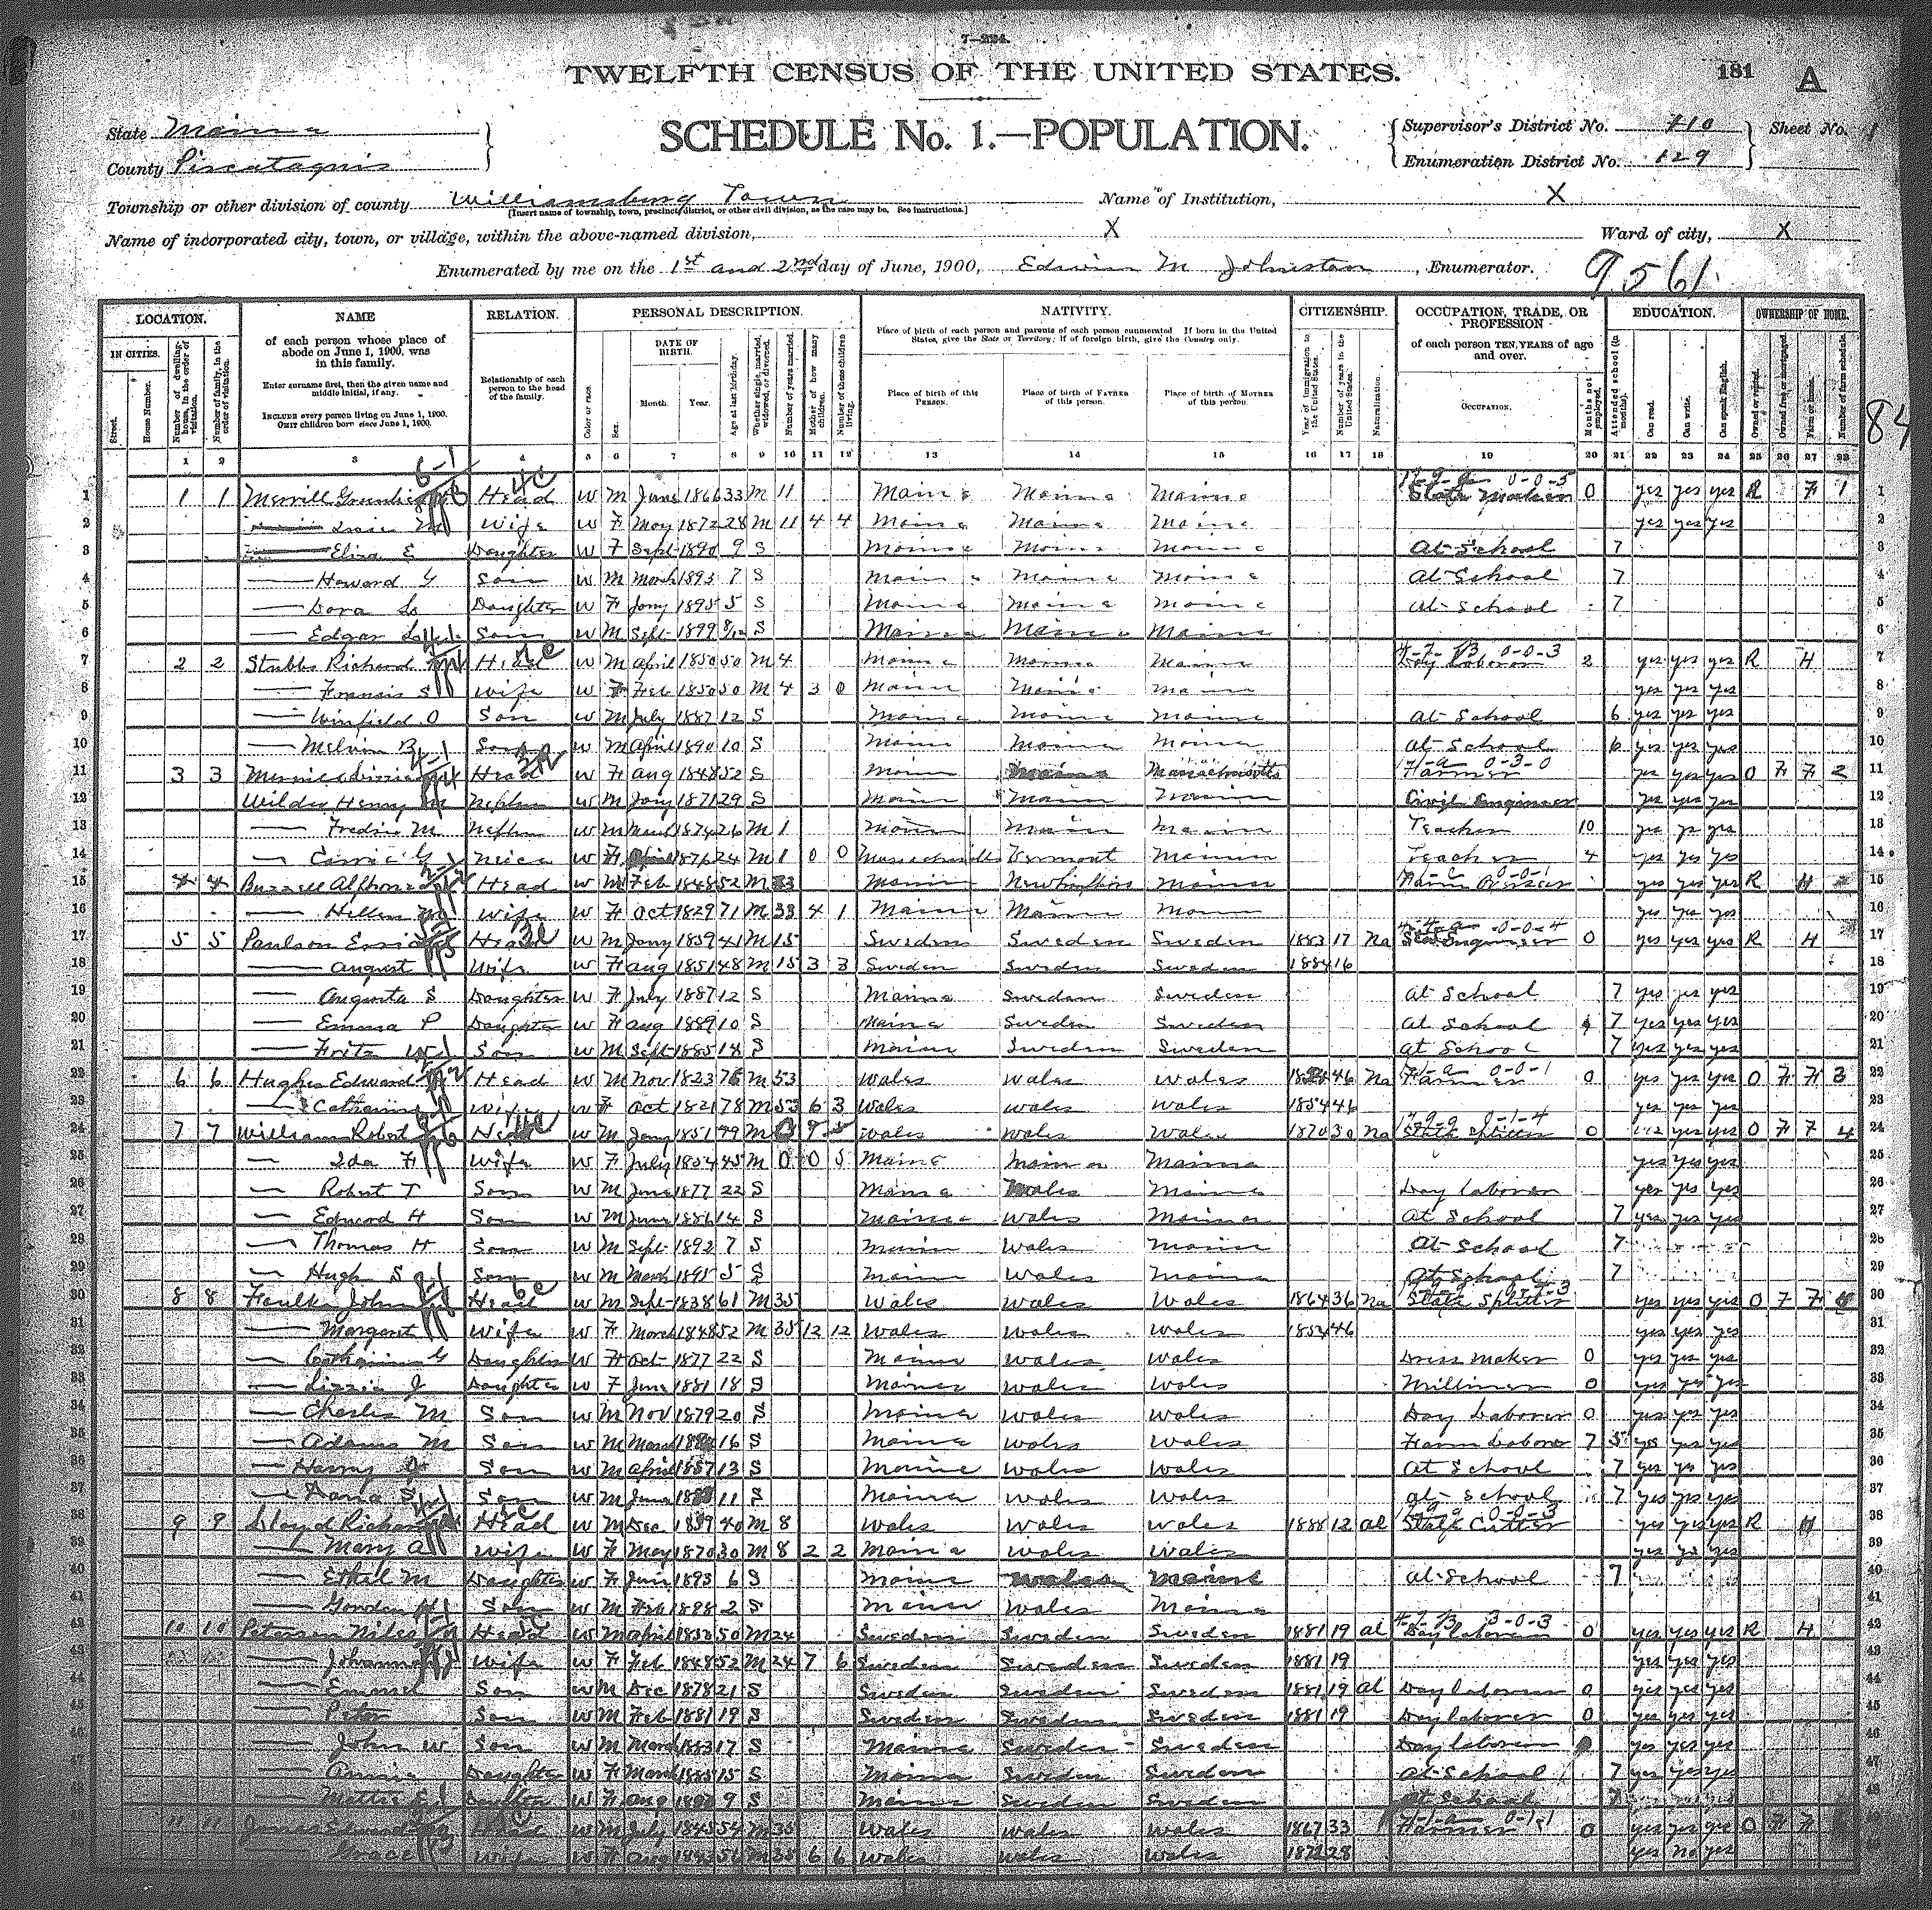 7—224.
TWELFTH CENSUS OF THE UNITED STATES.
181 A
State Maine
SCHEDULE No. 1.—POPULATION.
Supervisor's District No. 110
Sheet No. 1
County Piscataquis
Enumeration District No. 129
Township or other division of county Williamsburg Town
[Insert name of township, town, precinct, district, or other civil division, as the case may be. See instructions.]
Name of Institution, X
Name of incorporated city, town, or village, within the above-named division, X
Ward of city, X
Enumerated by me on the 1st and 2nd day of June, 1900, Edwin M Johnston, Enumerator.
9561
84
LOCATION. NAME RELATION. PERSONAL DESCRIPTION. NATIVITY. CITIZENSHIP. OCCUPATION, TRADE, OR PROFESSION EDUCATION. OWNERSHIP OF HOME.
IN CITIES. Street. House Number. Number of dwelling-house, in the order of visitation. Number of family, in the order of visitation.
of each person whose place of abode on June 1, 1900, was in this family.
Enter surname first, then the given name and middle initial, if any.
INCLUDE every person living on June 1, 1900. OMIT children born since June 1, 1900.
Relationship of each person to the head of the family.
Color or race. Sex. DATE OF BIRTH. Month. Year. Age at last birthday. Whether single, married, widowed, or divorced. Number of years married. Mother of how many children. Number of these children living.
Place of birth of each person and parents of each person enumerated. If born in the United States, give the State or Territory; if of foreign birth, give the Country only.
Place of birth of this PERSON. Place of birth of FATHER of this person. Place of birth of MOTHER of this person.
Year of immigration to the United States. Number of years in the United States. Naturalization.
of each person TEN YEARS of age and over.
OCCUPATION. Months not employed.
Attended school (in months). Can read. Can write. Can speak English.
Owned or rented. Owned free or mortgaged. Farm or house. Number of farm schedule.
1 2 3 4 5 6 7 8 9 10 11 12 13 14 15 16 17 18 19 20 21 22 23 24 25 26 27 28
1 1 1 Merrill Head W M June 1866 33 M 11 Maine Maine Maine 0 yes yes yes R F 1
2 Wife W F May 1872 28 M 11 4 4 Maine Maine Maine yes yes yes
3 Eliza E Daughter W F Sept 1890 9 S Maine Maine Maine At School 7
4 Howard G Son W M March 1893 7 S Maine Maine Maine At School 7
5 Dora Daughter W F Jany 1895 5 S Maine Maine Maine At School 7
6 Edgar Son W M Sept 1899 8/12 S Maine Maine Maine
7 2 2 Stubbs Richard Head W M April 1850 50 M 4 Maine Maine Maine Day Laborer 2 yes yes yes R H
8 Francis S Wife W F Feb 1850 50 M 4 3 0 Maine Maine Maine yes yes yes
9 Winfield O Son W M July 1887 12 S Maine Maine Maine At School 6 yes yes yes
10 Melvin B Son W M April 1890 10 S Maine Maine Maine At School 6 yes yes yes
11 3 3 Head W F Aug 1848 52 S Maine Maine Massachusetts Farmer yes yes yes O F F 2
12 Wilder Henry M Nephew W M Jany 1871 29 S Maine Maine Maine Civil Engineer yes yes yes
13 Fredric M Nephew W M March 1874 26 M 1 Maine Maine Maine Teacher 10 yes yes yes
14 Carrie G Niece W F April 1876 24 M 1 0 0 Massachusetts Vermont Maine Teacher 4 yes yes yes
15 4 4 Buzzell Alphonzo Head W M Feb 1848 52 M 33 Maine New Hampshire Maine yes yes yes R H
16 Hellen Wife W F Oct 1829 71 M 33 4 1 Maine Maine Maine yes yes yes
17 5 5 Paulson Head W M Jany 1859 41 M 15 Sweden Sweden Sweden 1883 17 Na 0 yes yes yes R H
18 August Wife W F Aug 1851 48 M 15 3 3 Sweden Sweden Sweden 1884 16
19 Augusta S Daughter W F July 1887 12 S Maine Sweden Sweden At School 7 yes yes yes
20 Emma P Daughter W F Aug 1889 10 S Maine Sweden Sweden At School 7 yes yes yes
21 Fritz Son W M Sept 1885 14 S Maine Sweden Sweden At School 7 yes yes yes
22 6 6 Hughes Edward Head W M Nov 1823 76 M 53 Wales Wales Wales 1854 46 Na Farmer 0 yes yes yes O F F 3
23 Catherine Wife W F Oct 1821 78 M 53 6 3 Wales Wales Wales 1854 46 yes yes yes
24 7 7 Williams Robert Head W M Jany 1851 49 M Wales Wales Wales 1870 30 Na Slate Splitter 0 yes yes yes O F F 4
25 Ida F Wife W F July 1854 45 M 0 0 5 Maine Maine Maine yes yes yes
26 Robert T Son W M June 1877 22 S Maine Wales Maine Day laborer yes yes yes
27 Edward H Son W M June 1886 14 S Maine Wales Maine At School 7 yes yes yes
28 Thomas H Son W M Sept 1892 7 S Maine Wales Maine At School 7
29 Hugh S Son W M March 1895 5 S Maine Wales Maine At School 7
30 8 8 Faulks John Head W M Sept 1838 61 M 35 Wales Wales Wales 1864 36 Na Slate Splitter yes yes yes O F F
31 Margaret Wife W F March 1848 52 M 35 12 12 Wales Wales Wales 1854 46 yes yes yes
32 Catherine G Daughter W F Oct 1877 22 S Maine Wales Wales Dress maker 0 yes yes yes
33 Lizzie J Daughter W F June 1881 18 S Maine Wales Wales Milliner 0 yes yes yes
34 Charles M Son W M Nov 1879 20 S Maine Wales Wales Day Laborer 0 yes yes yes
35 Adams M Son W M March 16 S Maine Wales Wales Farm Laborer 7 5 yes yes yes
36 Harry Son W M April 1887 13 S Maine Wales Wales At School 7 yes yes yes
37 Dana S Son W M June 11 S Maine Wales Wales At School 7 yes yes yes
38 9 9 Lloyd Richard Head W M Dec 1859 40 M 8 Wales Wales Wales 1888 12 Al yes yes yes R H
39 Mary A Wife W F May 1870 30 M 8 2 2 Maine Wales Wales yes yes yes
40 Ethel M Daughter W F June 1893 6 S Maine Wales Maine At School 7
41 Gordon Son W M Feb 1898 2 S Maine Wales Maine
42 10 10 Petersen Niles Head W M April 1850 50 M 24 Sweden Sweden Sweden 1881 19 Al Day laborer 0 yes yes yes R H
43 Johanna Wife W F Feb 1848 52 M 24 7 6 Sweden Sweden Sweden 1881 19 yes yes yes
44 Son W M Dec 1878 21 S Sweden Sweden Sweden 1881 19 Al Day laborer 0 yes yes yes
45 Peter Son W M Feb 1881 19 S Sweden Sweden Sweden 1881 19 Day laborer 0 yes yes yes
46 John W Son W M March 1883 17 S Maine Sweden Sweden Day laborer yes yes yes
47 Annie Daughter W F March 1885 15 S Maine Sweden Sweden At School 7 yes yes yes
48 Mattie E Daughter W F Aug 1890 9 S Maine Sweden Sweden At School
49 11 11 Jones Edward Head W M July 1845 54 M 35 Wales Wales Wales 1867 33 Farmer 0 yes yes yes O F F
50 Grace Wife W F Aug 1843 56 M 35 6 6 Wales Wales Wales 1872 28 yes no yes